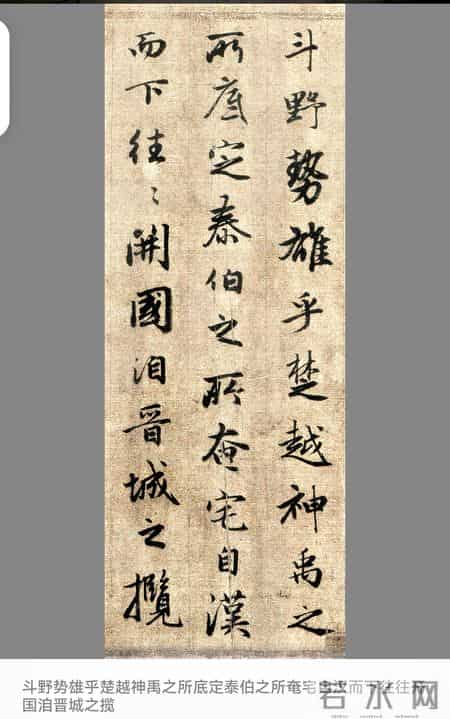 斗野勢雄乎楚越神禹之
所底定泰伯之所奄宅自漢
而下往〻開國洎晉城之攬
斗野势雄乎楚越神禹之所底定泰伯之所奄宅自汉而下往往开
国洎晋城之揽
若水网